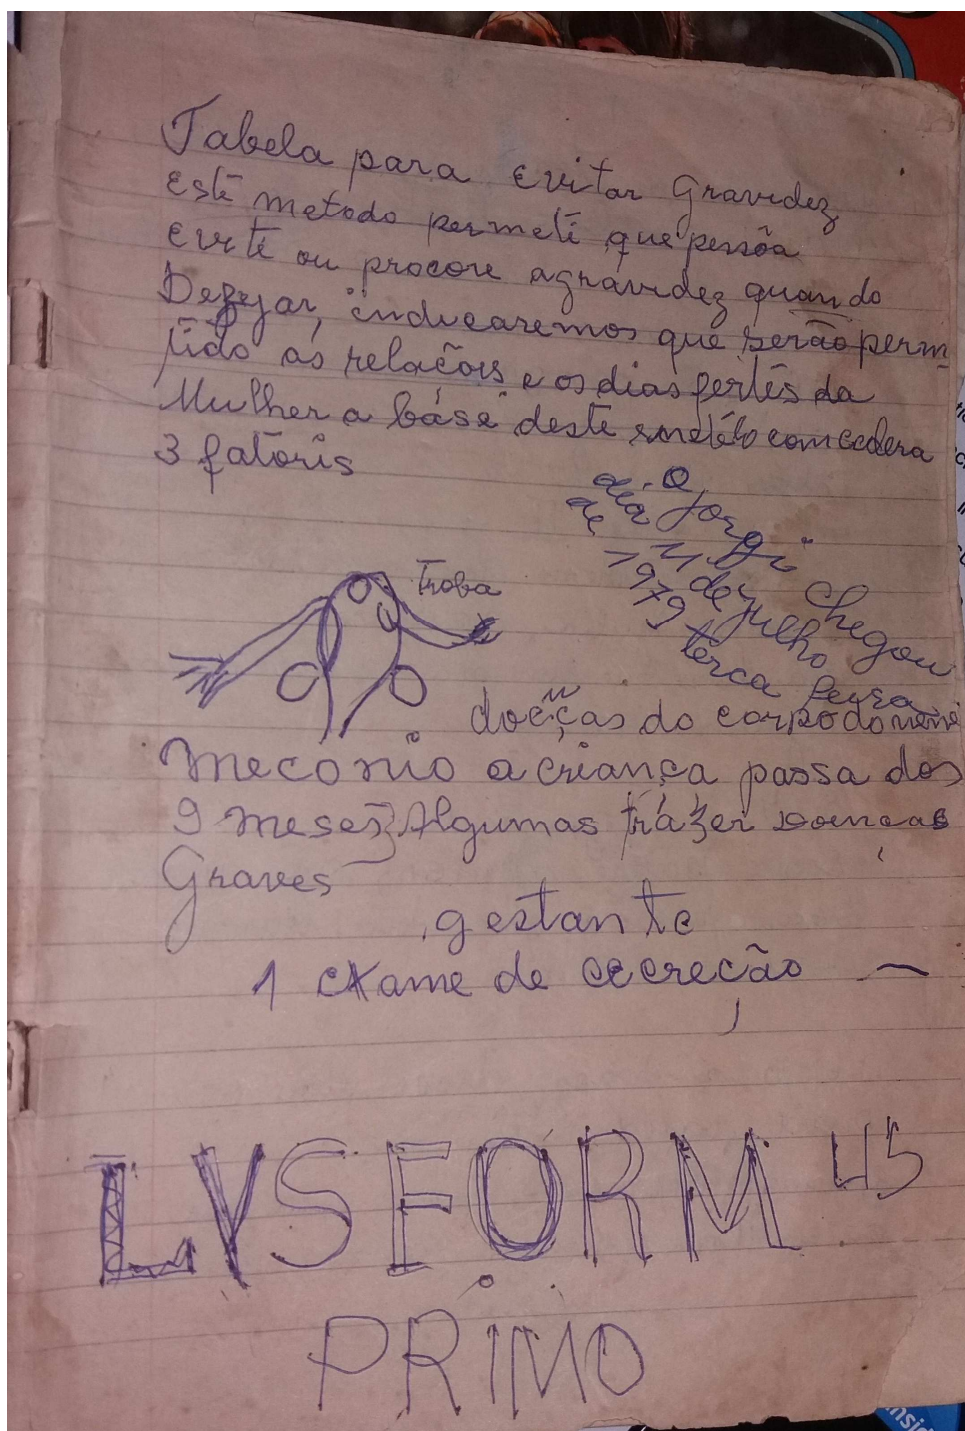 Tabela para evitar Gravidez
Esté metodo permeti que pessôa
Evité ou procore agravidez quando
Dezejar, indicaremos que serão perm
tido as relaçõis e os dias fertês da
Mulher a básé desté
3 fatôris
O Jorgi chegou
dia 11 de julho
de 1979 terca feira
Troba
doenças do corpo do
Meconio a criança passa dos
9 meses Algumas trázer doenças
Graves
gestante
1 exame de cecreção
LYSFORM 45
PRIMO